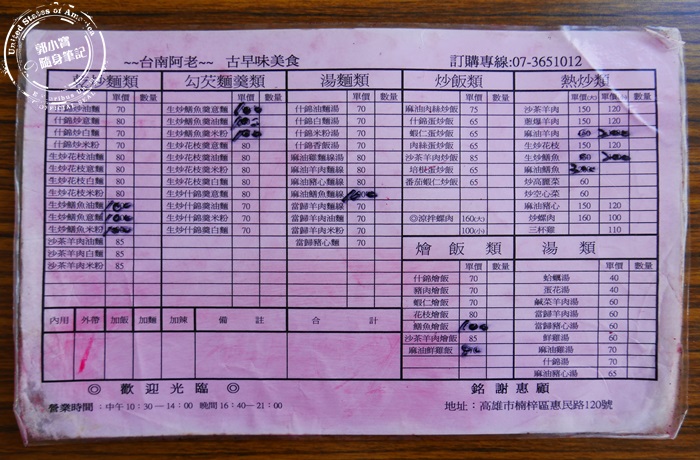 United States of America
郭小寶
隨身筆記
~~台南阿老~ 古早味美食 訂購專線:07-3651012
炒麵類 單價 數量
什錦炒意麵 80
什錦炒白麵 70
什錦炒米粉 70
生炒花枝油麵 80
生炒花枝意麵 80
生炒花枝白麵 80
生炒花枝米粉 80
生炒鱔魚油麵 100
生炒鱔魚意麵 100
生炒鱔魚米粉 100
沙茶羊肉油麵 85
沙茶羊肉白麵 85
沙茶羊肉米粉 85
勾芡麵羹類 單價 數量
生炒鱔魚羹意麵 100
生炒鱔魚羹油麵 100
生炒鱔魚羹米粉 100
生炒花枝羹意麵 80
生炒花枝羹油麵 80
生炒花枝羹白麵 80
生炒花枝羹米粉 80
生炒什錦羹意麵 80
生炒什錦羹油麵 70
生炒什錦羹米粉 70
生炒什錦羹白麵 70
湯麵類 單價 數量
什錦油麵湯 70
什錦白麵湯 70
什錦米粉湯 70
什錦香飯湯 70
麻油雞麵線湯 80
麻油羊肉麵線 80
麻油豬心麵線 80
麻油鱔魚麵線 100
當歸羊肉麵線 70
當歸羊肉油麵 70
當歸羊肉米粉 70
當歸豬心麵 70
炒飯類 單價 數量
麻油肉絲炒飯 75
什錦蛋炒飯 65
蝦仁蛋炒飯 65
肉絲蛋炒飯 65
沙茶羊肉炒飯 85
培根蛋炒飯 65
番茄蝦仁炒飯 65
◎涼拌螺肉 160(大)
100(小)
熱炒類 單價(大) 單價(小) 數量
沙茶羊肉 150 120
蔥爆羊肉 150 120
麻油羊肉 200
生炒花枝 150 120
生炒鱔魚 200
麻油鱔魚 300
炒高麗菜 60
炒空心菜 60
麻油豬心 150 120
炒螺肉 160 100
三杯雞 110
燴飯類 單價 數量
什錦燴飯 70
豬肉燴飯 70
蝦仁燴飯 70
花枝燴飯 80
鱔魚燴飯 100
沙茶羊肉燴飯 85
麻油鮮雞飯
湯類 單價 數量
蛤蠣湯 40
蛋花湯 40
鹹菜羊肉湯 60
當歸羊肉湯 60
當歸豬心湯 60
鮮雞湯 60
麻油雞湯 70
什錦湯 70
麻油豬心湯 65
內用 外帶 加飯 加麵 加辣 備註 合計
◎ 歡迎光臨 ◎ 銘謝惠顧
營業時間:中午10:30—14:00 晚間16:40—21:00 地址:高雄市楠梓區惠民路120號